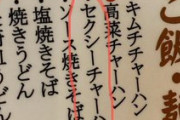 ご飯・麺
キムチチャーハン
高菜チャーハン
セクシーチャーハン
ソース焼きそば
塩焼きそば
焼きうどん